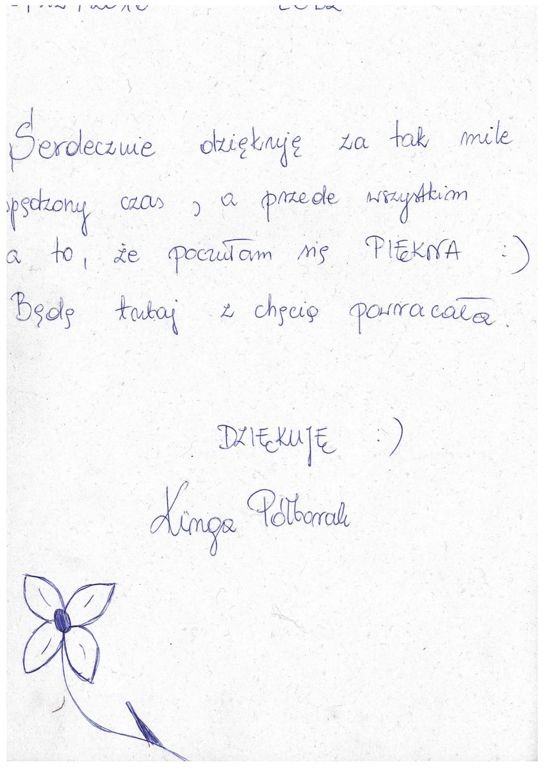 Serdecznie dziękuję za tak miłe
spędzony czas, a przede wszystkim
a to, że poczułam się PIĘKNA :)
Będę tutaj z chęcią powracała.
DZIĘKUJĘ :)
Kinga Półtorak